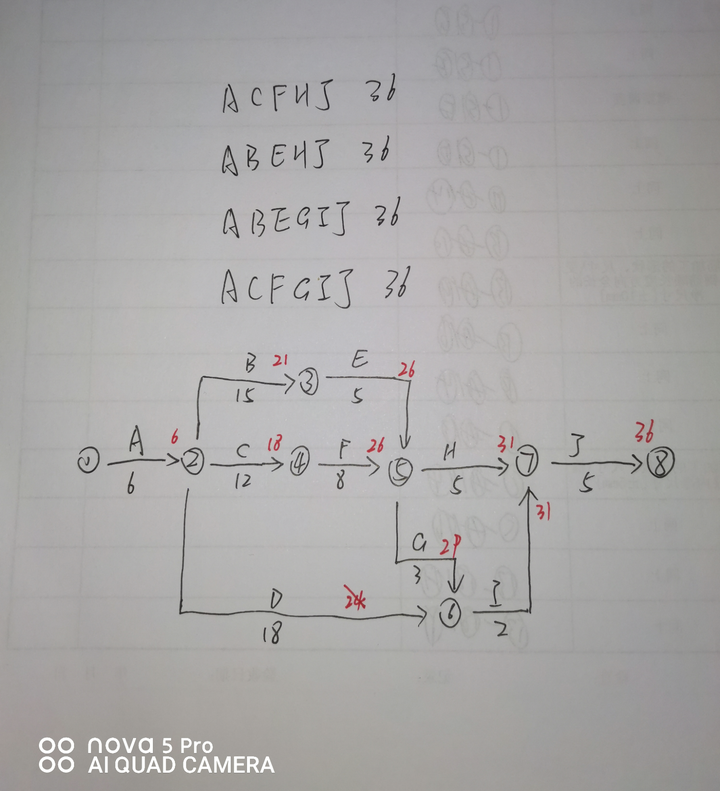 ACFHJ 36
ABEHJ 36
ABEGIJ 36
ACFGIJ 36
B 21 E 26
15 ③ 5
A 6 C 18 F 26 H 31 J 36
① ② ④ ⑤ ⑦ ⑧
6 12 8 5 5
31
G 29
3
D 24 ⑥ I
18 2
nova 5 Pro
AI QUAD CAMERA